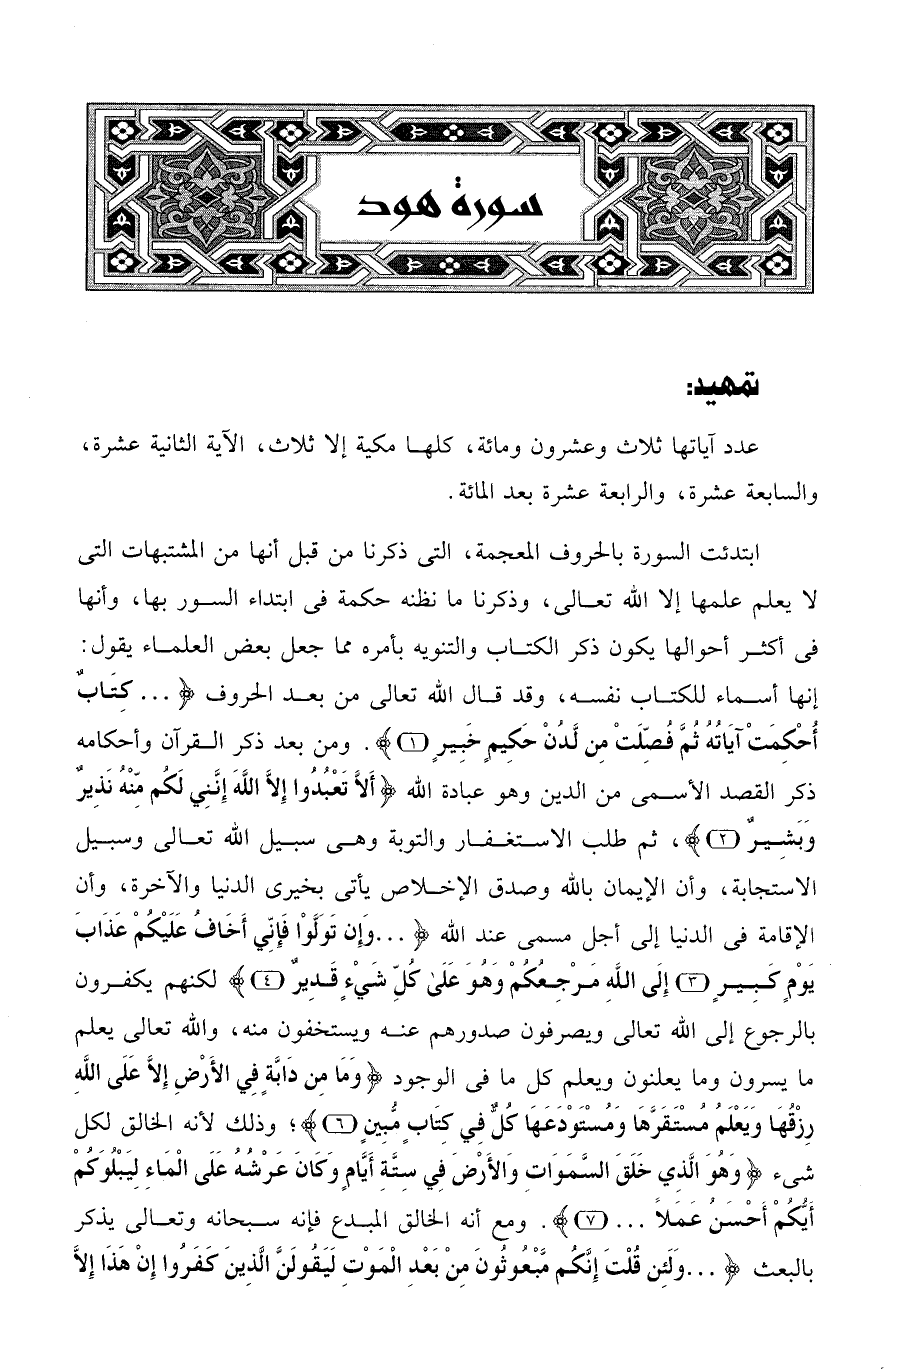 سورة هود
تمهيد:
عدد آياتها ثلاث وعشرون ومائة، كلها مكية إلا ثلاث، الآية الثانية عشرة،
والسابعة عشرة، والرابعة عشرة بعد المائة.
ابتدئت السورة بالحروف المعجمة، التى ذكرنا من قبل أنها من المشتبهات التى
لا يعلم علمها إلا الله تعالى، وذكرنا ما نظنه حكمة فى ابتداء السور بها، وأنها
فى أكثر أحوالها يكون ذكر الكتاب والتنويه بأمره مما جعل بعض العلماء يقول:
إنها أسماء للكتاب نفسه، وقد قال الله تعالى من بعد الحروف ﴿ ... كتَابٌ
أُحْكِمَتْ آيَاتُهُ ثُمَّ فُصِّلَتْ مِن لَّدُنْ حَكِيمٍ خَبِيرٍ (١)﴾. ومن بعد ذكر القرآن وأحكامه
ذكر القصد الأسمى من الدين وهو عبادة الله ﴿أَلاَّ تَعْبُدُوا إِلاَّ اللَّهَ إِنَّنِي لَكُم مِّنْهُ نَذِيرٌ
وَبَشِيرٌ (٢)﴾، ثم طلب الاستغفار والتوبة وهى سبيل الله تعالى وسبيل
الاستجابة، وأن الإيمان بالله وصدق الإخلاص يأتى بخيرى الدنيا والآخرة، وأن
الإقامة فى الدنيا إلى أجل مسمى عند الله ﴿ ...وَإِن تَوَلَّوْا فَإِنِّي أَخَافُ عَلَيْكُمْ عَذَابَ
يَوْمٍ كَبِيرٍ (٣) إِلَى اللَّهِ مَرْجِعُكُمْ وَهُوَ عَلَىٰ كُلِّ شَيْءٍ قَدِيرٌ (٤)﴾ لكنهم يكفرون
بالرجوع إلى الله تعالى ويصرفون صدورهم عنه ويستخفون منه، والله تعالى يعلم
ما يسرون وما يعلنون ويعلم كل ما فى الوجود ﴿وَمَا مِن دَابَّةٍ فِي الأَرْضِ إِلاَّ عَلَى اللَّهِ
رِزْقُهَا وَيَعْلَمُ مُسْتَقَرَّهَا وَمُسْتَوْدَعَهَا كُلٌّ فِي كِتَابٍ مُّبِينٍ (٦)﴾؛ وذلك لأنه الخالق لكل
شىء ﴿وَهُوَ الَّذِي خَلَقَ السَّمَوَاتِ وَالأَرْضَ فِي سِتَّةِ أَيَّامٍ وَكَانَ عَرْشُهُ عَلَى الْمَاءِ لِيَبْلُوَكُمْ
أَيُّكُمْ أَحْسَنُ عَمَلاً ... (٧)﴾. ومع أنه الخالق المبدع فإنه سبحانه وتعالى يذكر
بالبعث ﴿ ...وَلَئِن قُلْتَ إِنَّكُم مَّبْعُوثُونَ مِنْ بَعْدِ الْمَوْتِ لَيَقُولَنَّ الَّذِينَ كَفَرُوا إِنْ هَذَا إِلاَّ